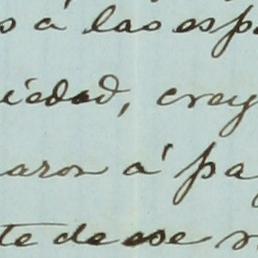 s á las esp
iedad, crey
aron á pa
te de ese r